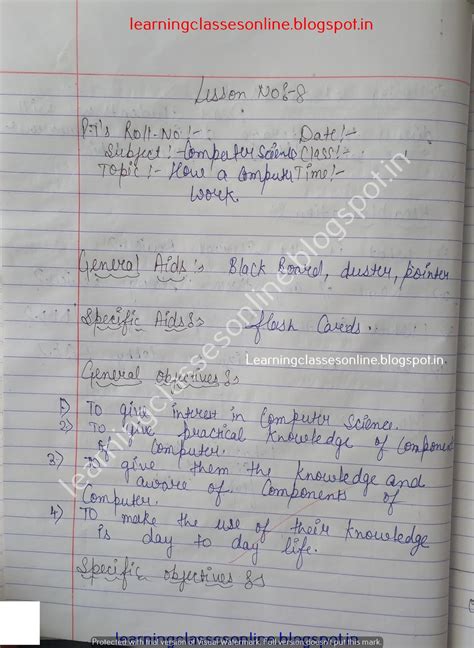 learningclassesonline.blogspot.in
Lesson No:-8
P.T's Roll-No:- Date:-
Subject:- Computer Science Class:-
Topic:- How a Computer Time:-
Work.
General Aids :- Black Board, duster, pointer
Specific Aids :- flash Cards.
Learningclassesonline.blogspot.in
General Objectives :-
1) To give interest in Computer Science.
2) To give practical knowledge of Component
of Computer.
3) To give them the knowledge and
aware of Components of
Computer.
4) To make the use of their knowledge
is day to day life.
Specific objectives :-
learningclassesonline.blogspot.in
Protected with free version of Visual Watermark. Full version doesn't put this mark.
learningclassesonline.blogspot.in